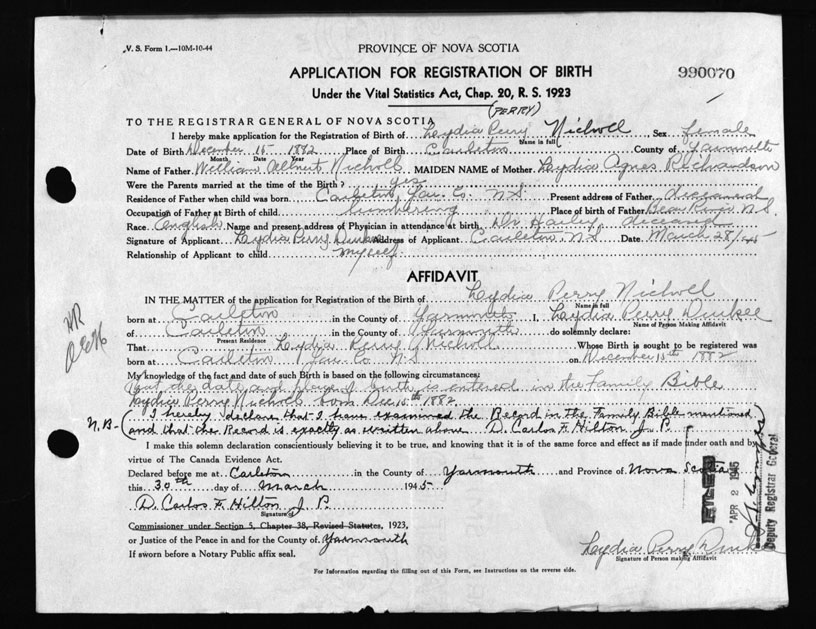 V. S. Form 1.—10M-10-44
PROVINCE OF NOVA SCOTIA
APPLICATION FOR REGISTRATION OF BIRTH
990070
Under the Vital Statistics Act, Chap. 20, R. S. 1923
(PERRY)
TO THE REGISTRAR GENERAL OF NOVA SCOTIA
I hereby make application for the Registration of Birth of Lydia Perry Nicholl Sex female
Name in full
Date of Birth December 15 1882 Place of Birth Carleton County of Yarmouth
Month Date Year
Name of Father William Albert Nicholl MAIDEN NAME of Mother Lydia Agnes Richardson
Were the Parents married at the time of the Birth? Yes
Residence of Father when child was born, Carleton, Yar. Co. N.S. Present address of Father, deceased
Occupation of Father at Birth of child Lumbering Place of birth of Father Bear River N.S.
Race English Name and present address of Physician in attendance at birth Dr. Harley, deceased
Signature of Applicant Lydia Perry Durkee Address of Applicant Carleton, N.S. Date March 28/45
Relationship of Applicant to child myself
AFFIDAVIT
IN THE MATTER of the application for Registration of the Birth of Lydia Perry Nicholl
Name in full
born at Carleton in the County of Yarmouth I, Lydia Perry Durkee
Name of Person Making Affidavit
of Carleton in the County of Yarmouth do solemnly declare:
Present Residence
That Lydia Perry Nicholl Whose Birth is sought to be registered was
born at Carleton, Yar. Co. N.S. on December 15th 1882
My knowledge of the fact and date of such Birth is based on the following circumstances:
that the date and place of birth is entered in the Family Bible
Lydia Perry Nicholl born Dec 15th 1882
N.B- (I hereby declare that I have examined the Record in the Family Bible mentioned
and that the Record is exactly as written above. D. Carlos F. Hilton J. P.)
I make this solemn declaration conscientiously believing it to be true, and knowing that it is of the same force and effect as if made under oath and by
virtue of The Canada Evidence Act.
Declared before me at Carleton in the County of Yarmouth and Province of Nova Scotia
this 30th day of March 1945
D. Carlos F. Hilton J. P.
Signature of
Commissioner under Section 5, Chapter 38, Revised Statutes, 1923,
or Justice of the Peace in and for the County of Yarmouth
If sworn before a Notary Public affix seal.
Lydia Perry Durkee
Signature of Person making Affidavit
For Information regarding the filling out of this Form, see Instructions on the reverse side.
FILED
APR 2 1945
Deputy Registrar General